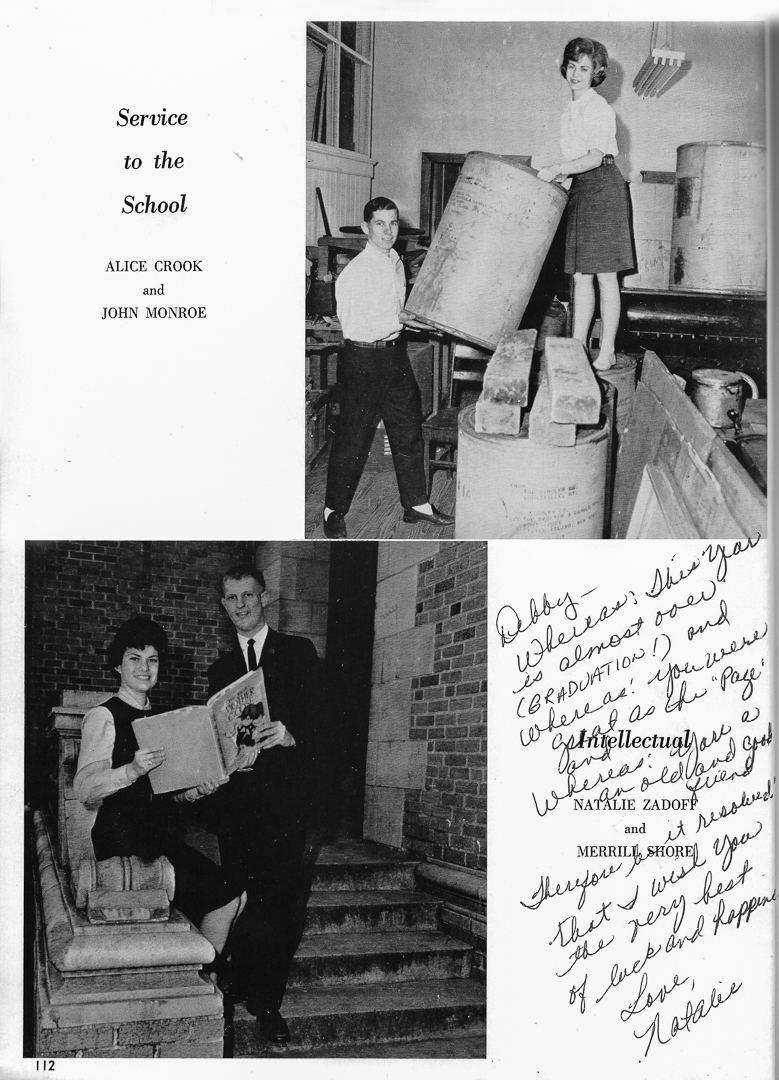 Service
to the
School
ALICE CROOK
and
JOHN MONROE
Debby—
Whereas: This Year
is almost over
(GRADUATION!) and
Whereas: you were
great as the "Page"
and
Whereas: You're a
an old and good
friend
Therefore be it resolved:
that I wish You
the very best
of luck and happine
Love,
Natalie
Intellectual
NATALIE ZADOFF
and
MERRILL SHORE
112